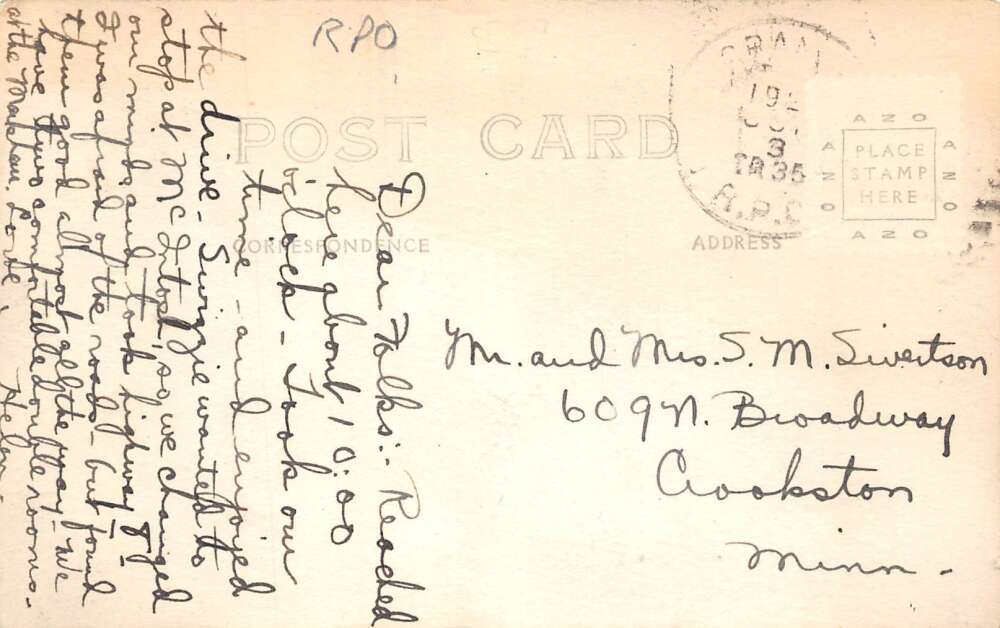 RPO
POST CARD
CORRESPONDENCE
ADDRESS
AZO
AZO
PLACE
STAMP
HERE
AZO
AZO
3
TR 35
R.P.O
Dear Folks:- Reached
here about 10:00
o'clock - Took our
time - and enjoyed
the drive. Swiggie wanted to
stop at McIntosh, so we changed
our minds and took highway 8-
I was afraid of the roads - but found
them good almost all the way - We
have two comfortable double rooms -
at the Markham. Love, Helen.
Mr. and Mrs. S. M. Sivertson
609 N. Broadway
Crookston
Minn -